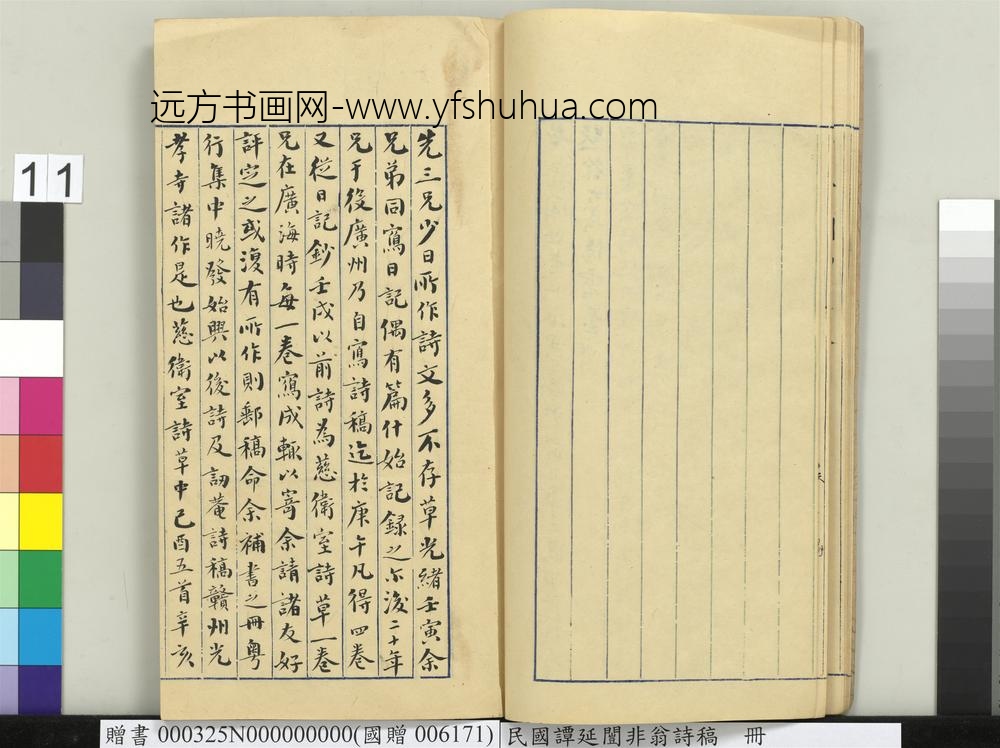 远方书画网-www.yfshuhua.com
11
先三兄少日所作詩文多不存草光緒壬寅余
兄弟同寫日記偶有篇什始記録之尔後二十年
兄于役廣州乃自寫詩稿迄於庚午凡得四卷
又從日記鈔壬戌以前詩為慈衛室詩草一卷
兄在廣海時每一卷寫成輒以寄余請諸友好
評定之或復有所作則郵稿命余補書之冊粤
行集中曉發始興以後詩及訒菴詩稿贛州光
孝寺諸作是也慈衛室詩草中己酉五首辛亥
贈書 000325N000000000(國贈 006171)
民國譚延闓非翁詩稿 冊